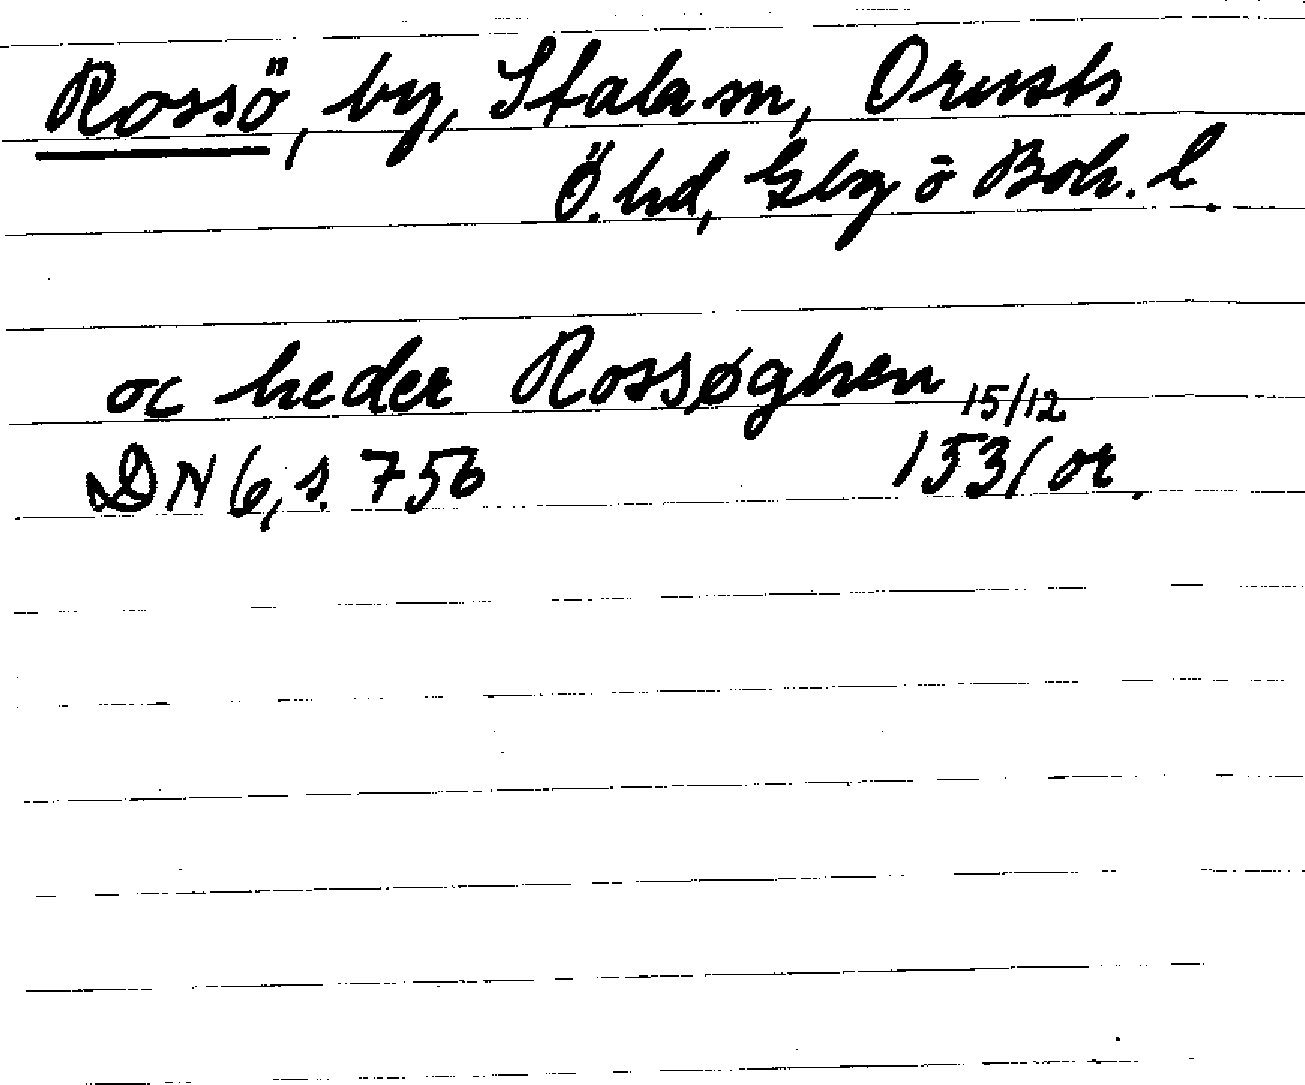 Rossö, by, Stala sn, Orusts
Ö. hd, Gbg o Boh. l.
oc heder Rossøghen 15/12
DN 6, s. 756 1531 or.